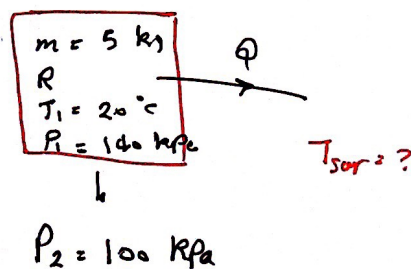 m = 5 kg
R
T₁ = 20 °C
P₁ = 140 kPa
Q
T_sur = ?
P₂ = 100 kPa